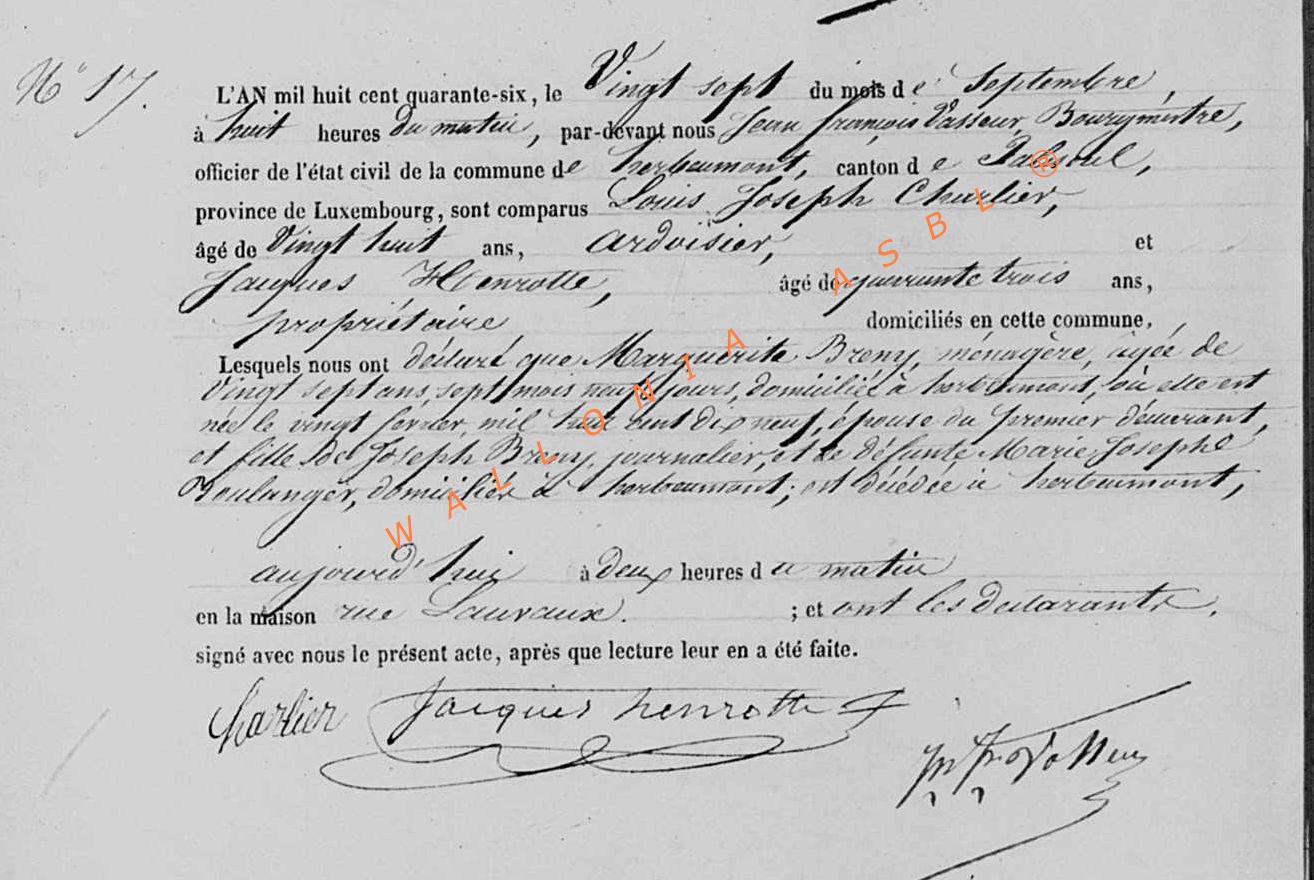 N° 17.
L'AN mil huit cent quarante-six, le Vingt sept du mois de Septembre,
à huit heures du matin, par-devant nous Jean françois Vasseur, Bourgmestre,
officier de l'état civil de la commune de herbeumont, canton de Paliseul,
province de Luxembourg, sont comparus Louis Joseph Charlier,
âgé de Vingt huit ans, ardoisier, et
Jacques Henrotte, âgé de quarante trois ans,
propriétaire domiciliés en cette commune,
Lesquels nous ont déclaré que Marguerite Breny, ménagère, agée de
Vingt sept ans, sept mois neuf jours, domiciliée à herbeumont, où elle est
née le vingt février, mil huit cent dix neuf, épouse du premier déclarant,
et fille de Joseph Breny, journalier, et de défunte Marie Josephe
Boulanger, domiciliés à herbeumont; est décédée à herbeumont,
aujourd'hui à deux heures du matin
en la maison rue Lauvaux. ; et ont les déclarants.
signé avec nous le présent acte, après que lecture leur en a été faite.
Charlier Jacques henrotte
WALLONIA ASBL ®